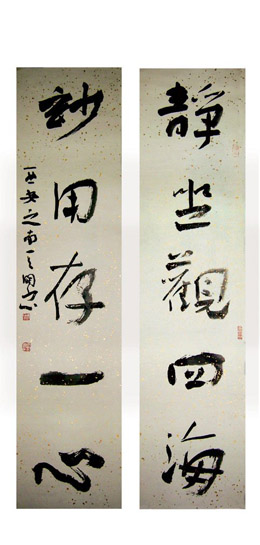 靜坐觀四海
妙用存一心